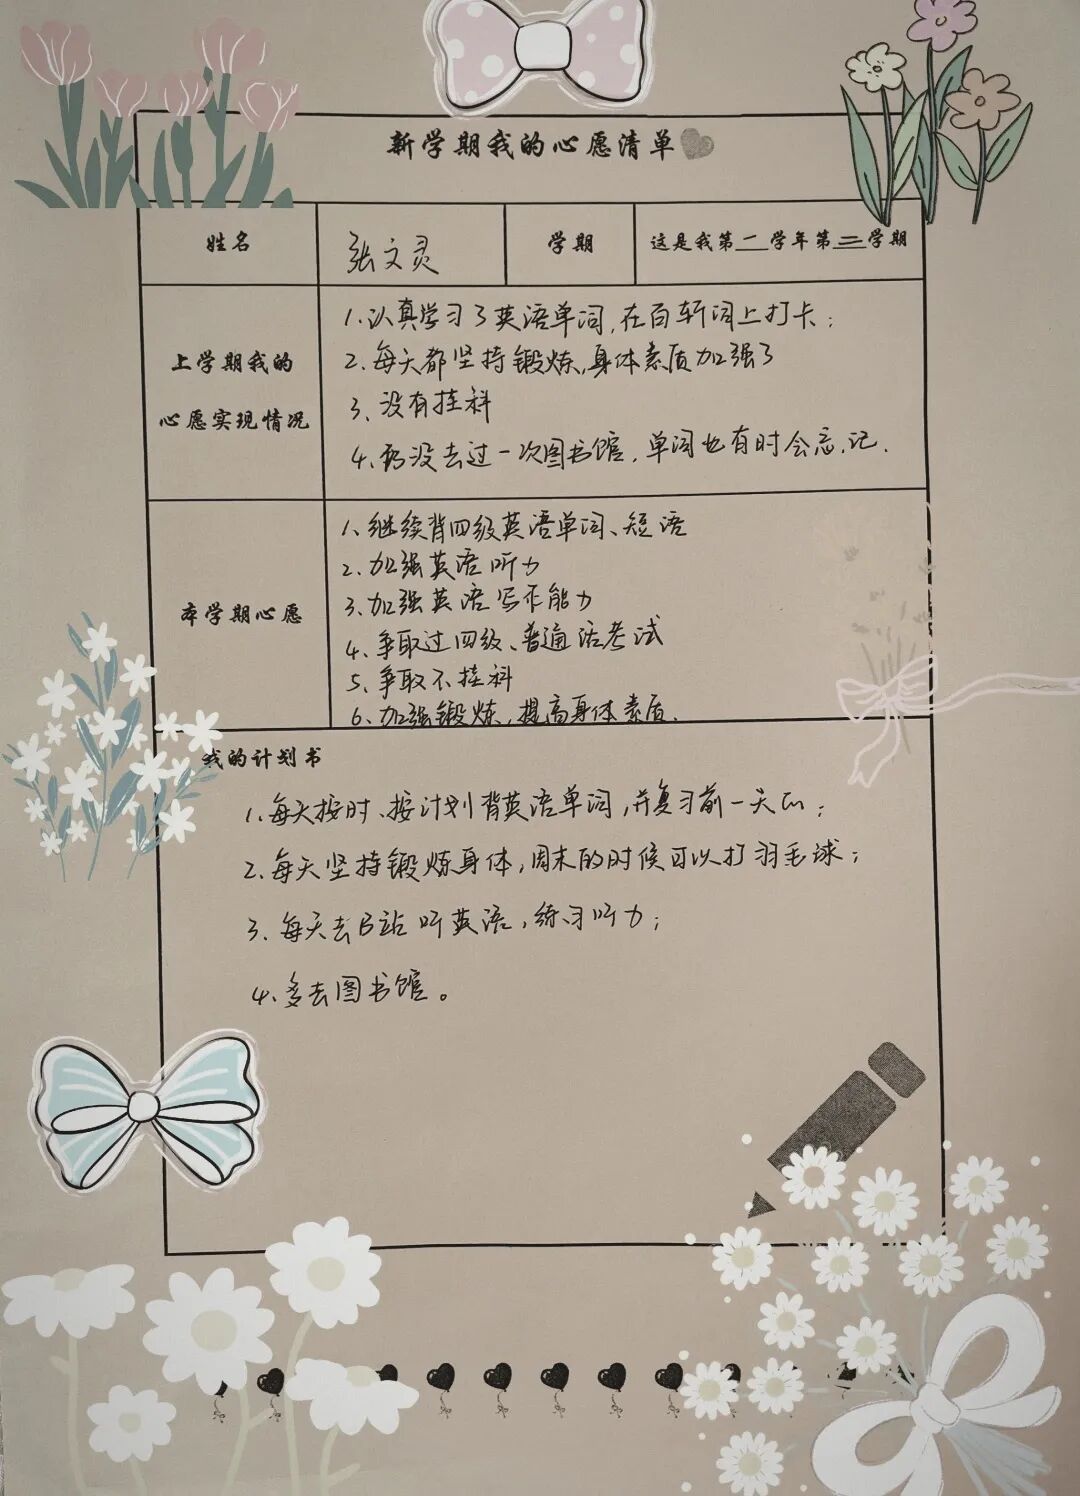 新学期我的心愿清单
姓名 张文灵 学期 这是我第一学年第二学期
上学期我的
心愿实现情况
1.认真学习了英语单词,在百斩词上打卡;
2.每天都坚持锻炼,身体素质加强了
3.没有挂科
4.仍没去过一次图书馆,单词也有时会忘记.
本学期心愿
1.继续背四级英语单词、短语
2.加强英语听力
3.加强英语写作能力
4.争取过四级、普通话考试
5.争取不挂科
6.加强锻炼,提高身体素质.
我的计划书
1.每天按时、按计划背英语单词,并复习前一天的;
2.每天坚持锻炼身体,周末的时候可以打羽毛球;
3.每天去B站听英语,练习听力;
4.多去图书馆。